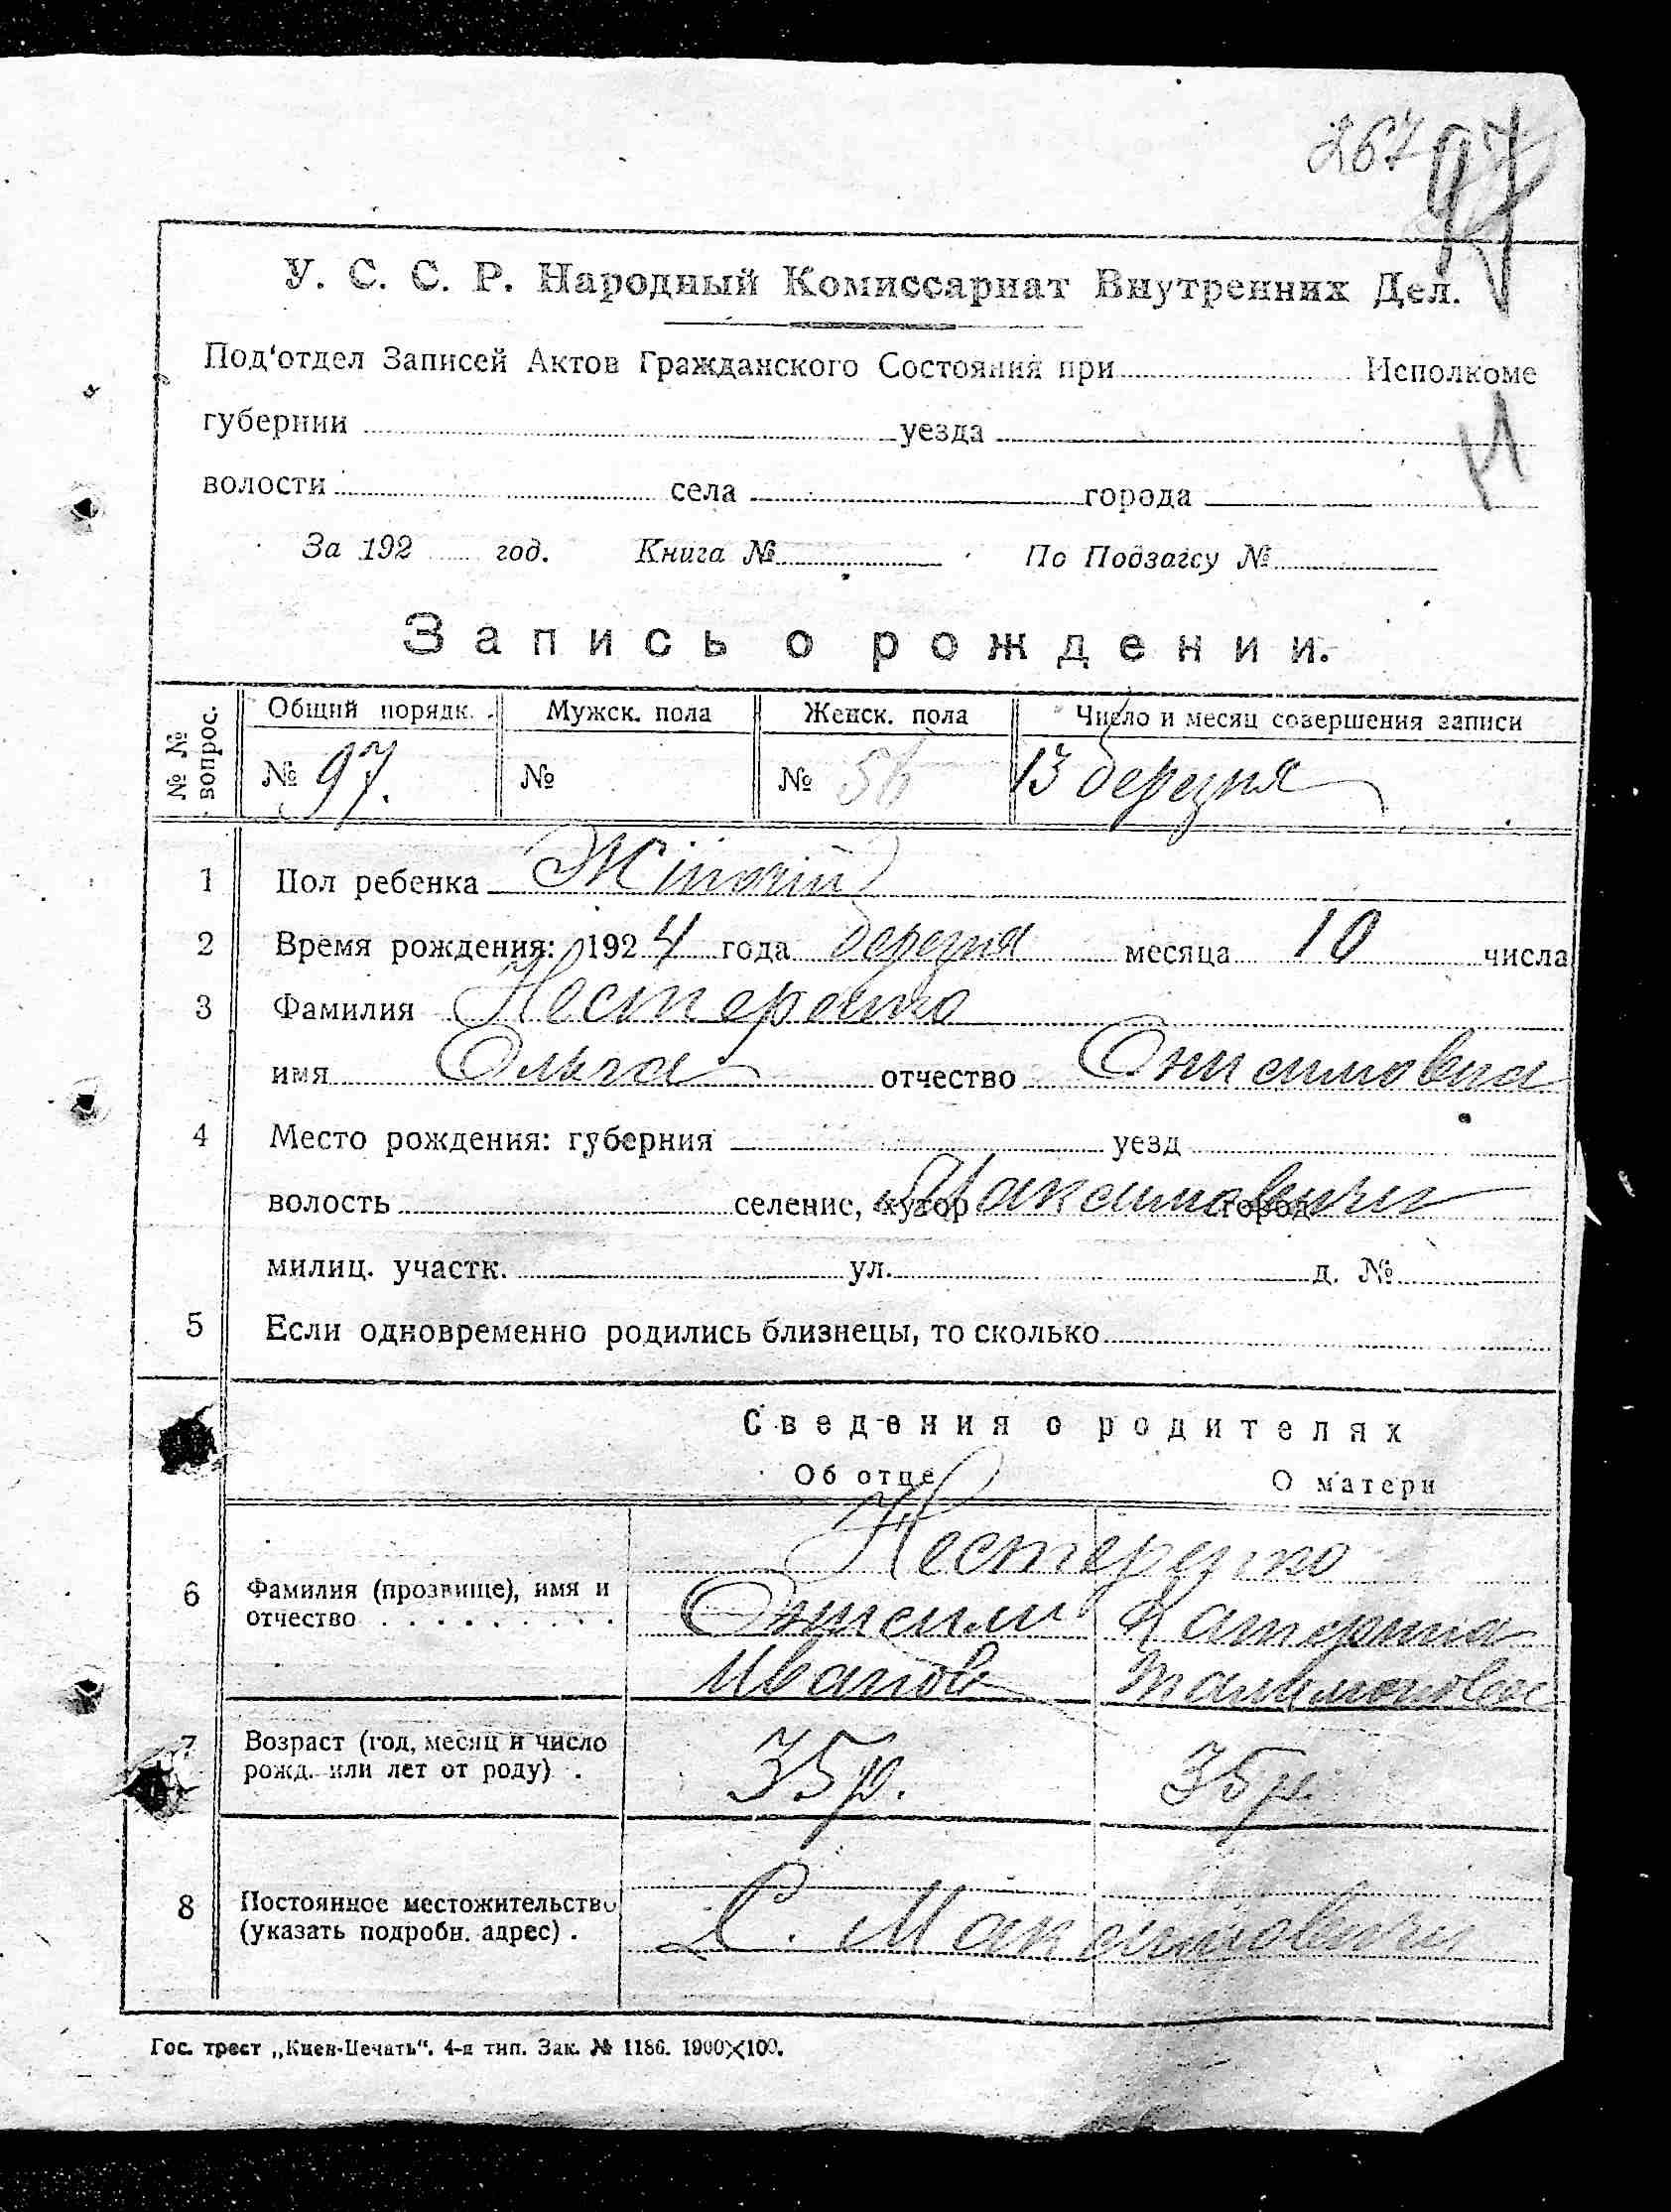 267 97
У. С. С. Р. Народный Комиссариат Внутренних Дел.
Под'отдел Записей Актов Гражданского Состояния при Исполкоме
губернии уезда
волости села города
За 192 год. Книга № По Подзагсу №
Запись о рождении.
№ № вопрос. Общий порядк. Мужск. пола Женск. пола Число и месяц совершения записи
№ 97. № № 56 13 березня
1 Пол ребенка Жіночій
2 Время рождения: 1924 года березня месяца 10 числа
3 Фамилия Нестеренко
имя Ольга отчество Онисимовна
4 Место рождения: губерния уезд
волость селение, хутор Максимовичи город
милиц. участк. ул. д. №
5 Если одновременно родились близнецы, то сколько
Сведения о родителях
Об отце О матери
Нестеренко
6 Фамилия (прозвище), имя и отчество Онисим Катерина
Иванов
7 Возраст (год, месяц и число рожд. или лет от роду) . 35 р. 35 р.
8 Постоянное местожительство (указать подробн. адрес) . С. Максимовичи
Гос. трест „Киев-Печать“. 4-я тип. Зак. № 1186. 1900×100.